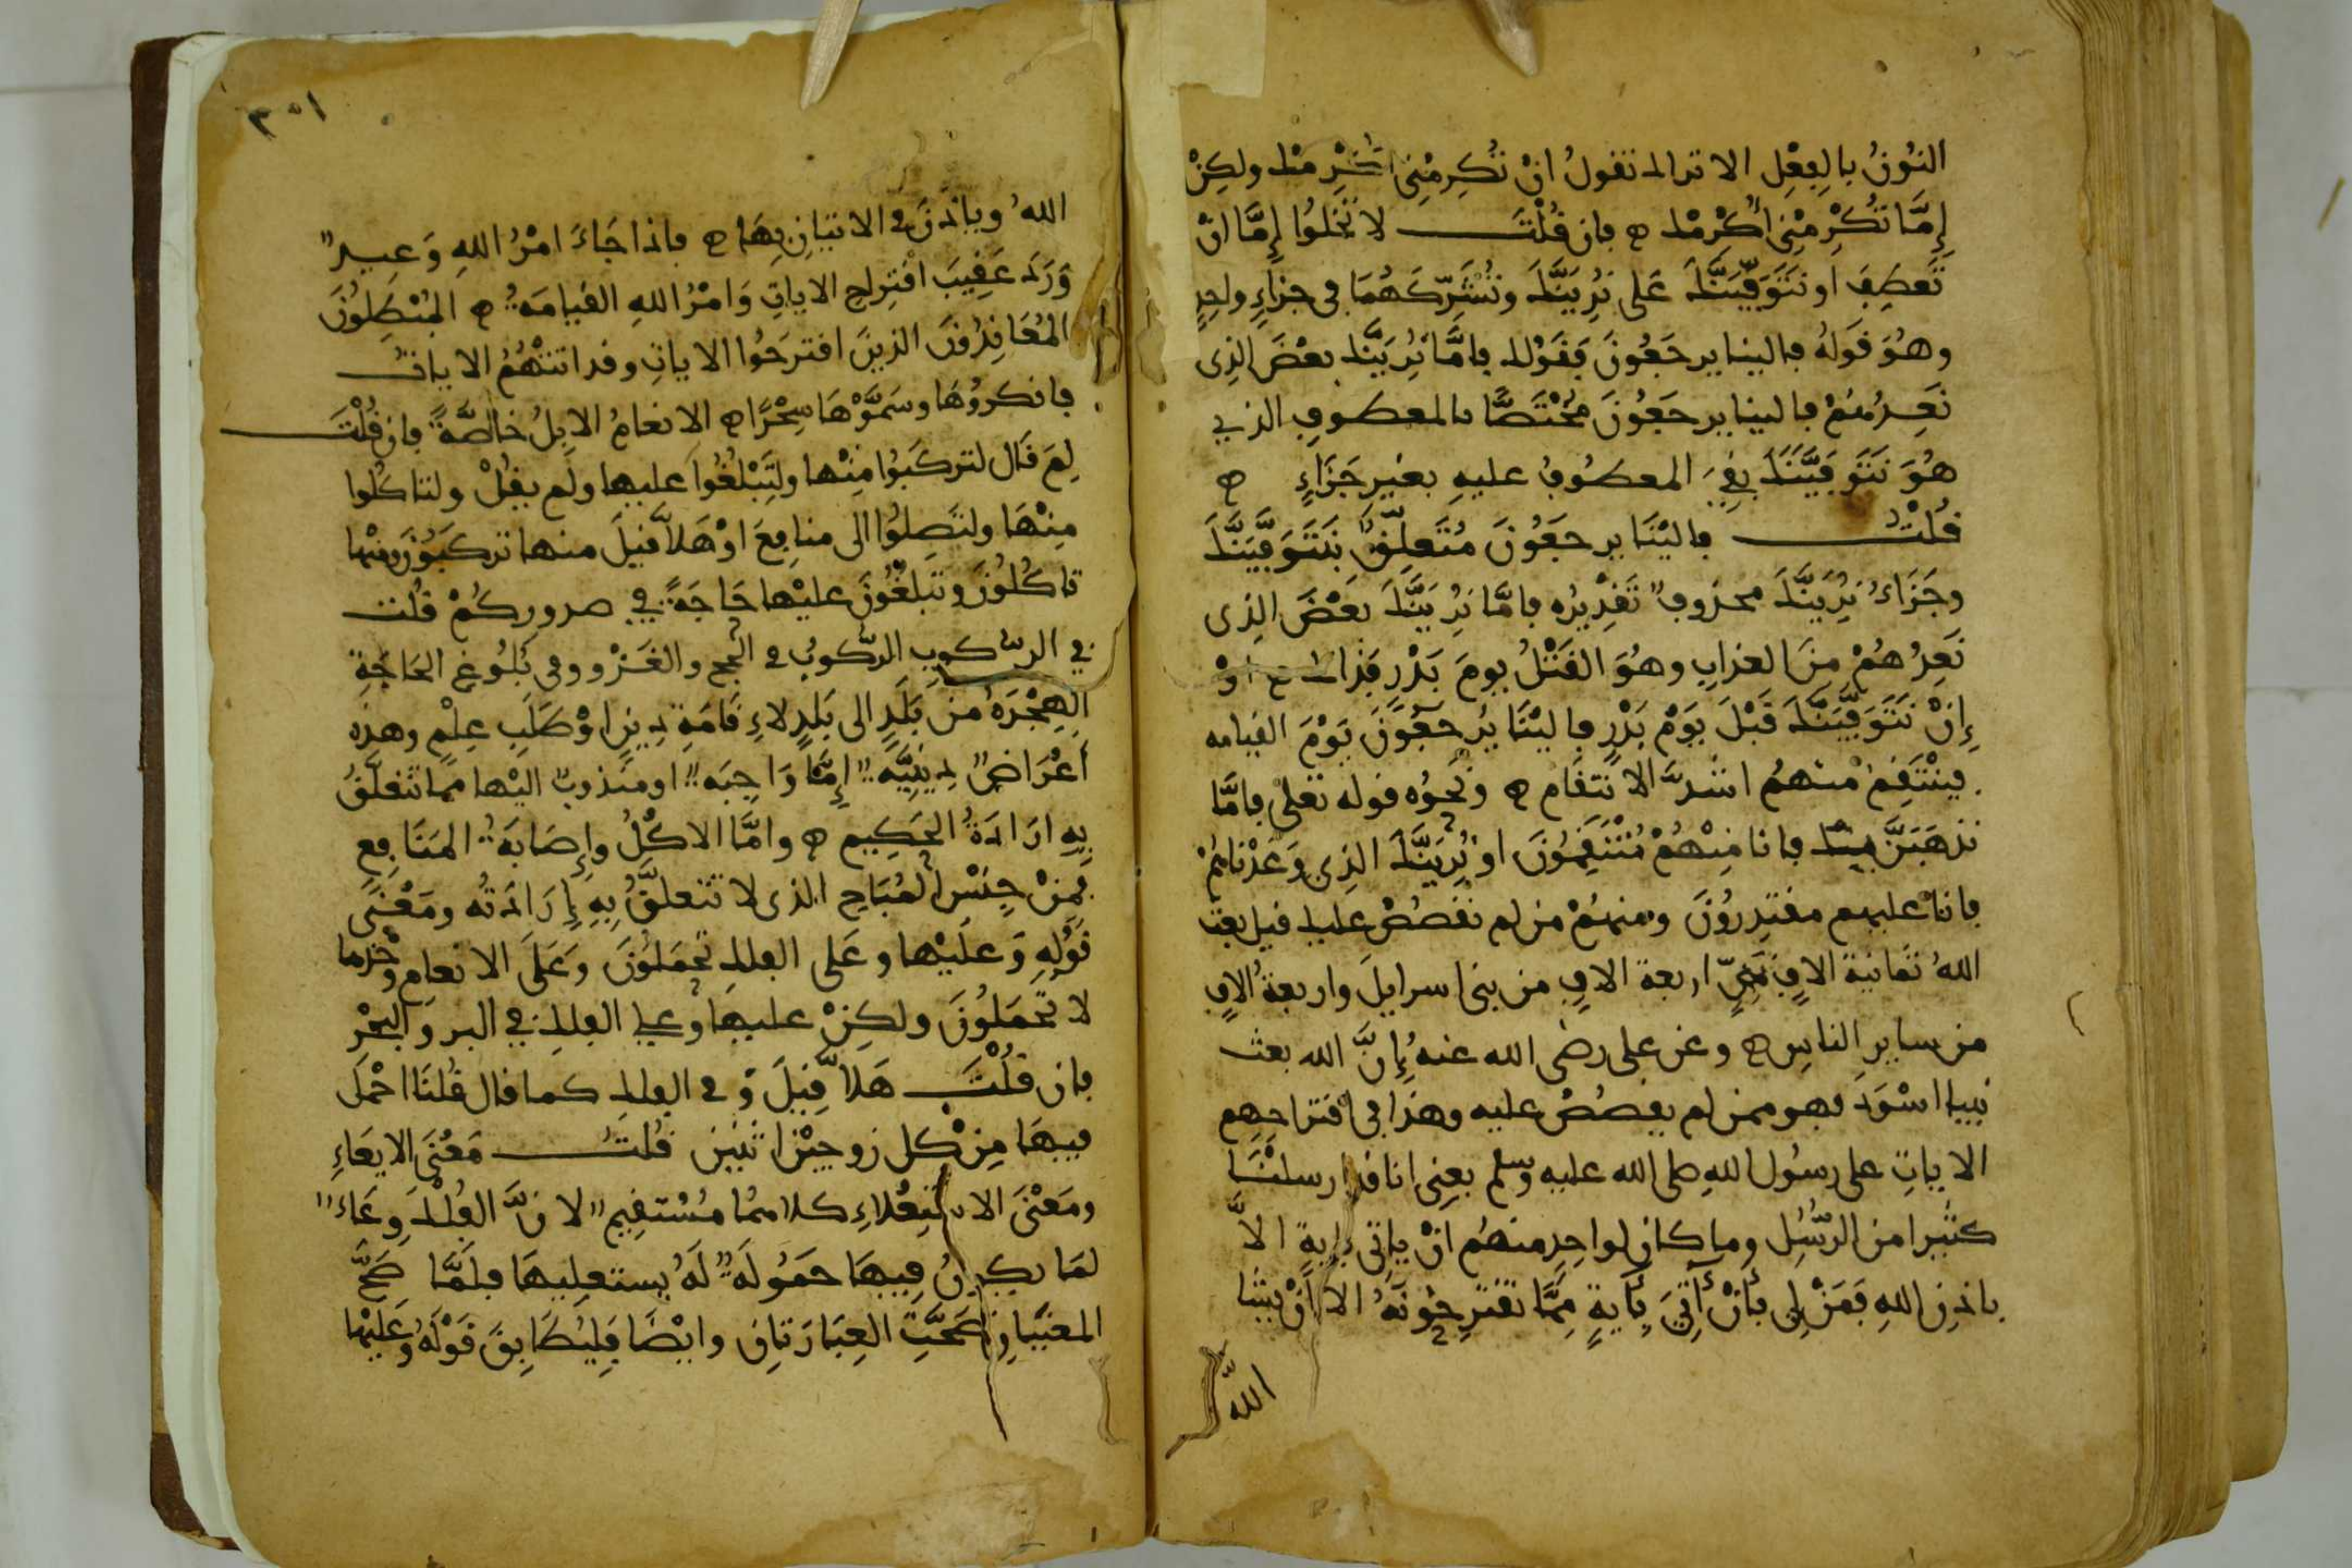 النُونُ بالفِعْلِ الا تراك تقولُ انْ تُكرِمْنِي اكْرِمْك ولكِنْ
إمَّا تُكْرِمْنِي أُكْرِمْك ه فان قُلْتَ لا تَخْلُوا إِمَّا انْ
تَعطِفَ او نَتَوَفَّيَنَّكَ عَلى نُرِيَنَّكَ وتُشَرِّكَهُمَا فى جزاءٍ واحدٍ
وهُوَ قَوْلهُ فالينا يرجَعُونَ فَقَوْلك فامَّا نُرِيَنَّكَ بعْضَ الذِى
نَعِدُهُمْ فالينا يرجَعُونَ مُخْتَصًّا بالمعطوفِ الذي
هُوَ نَتَوَفَّيَنَّكَ بقِيَ المعطُوفُ عليهِ بغيرِ جَزَاءٍ ه
قُلْتُ فالَيْنَا يرجَعُونَ مُتَعلِّقٌ بِنَتَوَفَّيَنَّكَ
وجَزَاءُ نُرِيَنَّكَ محذوفٌ تَقْدِيرُه فامَّا نُرِيَنَّكَ بعْضَ الذِى
نَعِدُهُمْ مِنَ العذابِ وهُوَ القَتْلُ يومَ بَدْرٍ فَذاك اوْ
إِنْ نَتَوَفَّيَنَّكَ قَبْلَ يَوْمِ بَدْرٍ فالَيْنَا يُرجَعُونَ يَوْمَ القيامه
فينْتَقِمُ منهُم اشَدَّ الانتقامِ ه ونَحْوُه قوله تعلى فامَّا
نذهَبَنَّ بِكَ فانا مِنْهُمْ مُنْتَقِمُونَ او نُرِيَنَّكَ الذِى وَعَدْناهُمْ
فانا عليهم مقتدِرُونَ ومنهُمْ من لم نقصُصْ عليك قيل بعث
اللهُ ثمانية الافِ نَبِيٍّ اربعة الافٍ من بنى اسرايلَ واربعةُ الافٍ
من سايرِ الناسِ ه وعن على رضى الله عنهُ إِنَّ الله بعث
نبيا اسْوَدَ فهو ممن لم يقصُصْ عليه وهذا فى اقتراحهم
الاياتِ على رسُول اللهِ صلى الله عليه وسلم يعنى انا قد ارسلنَا
كثيرا من الرُّسُلِ وما كان لواحِدٍ منهُم انْ ياتى بايةٍ الاَّ
باذنِ اللهِ فَمَنْ لِى بأنْ أتِيَ بأَيةٍ مِمَّا تقترِحُونَهُ الا انْ يشا
اللهُ
٣٥١
اللهُ وياذنَ فى الاتيانِ بِهَا ه فاذا جَاءَ امْرُ اللهِ وَعِيدٌ
وَرَدَ عَقِيبَ اقْتِراحِ الاياتِ وَامْرُ اللهِ القيامَةُ ه المُبْطِلُونَ
المُعَانِدُونَ الذينَ اقترحُوا الاياتِ وقد اتتْهُمُ الاياتُ
فانكروُهَا وسَمَّوْهَا سِحْرًا ه الانعامُ الابلُ خاصَّةً فان قُلْتَ
لِمَ قَال لتركَبُوا مِنْها ولِتَبْلُغُوا عليها ولَم يقُلْ ولتاكُلوا
مِنْهَا ولتَصِلُوا الى منافِعَ اوْ هَلاَّ قيلَ منها تركَبُونَ ومنْها
تاكُلُونَ وتَبلُغُونَ عليْها حَاجَةً في صدوركُمْ قُلْت
في الركوبِ الرُّكوبُ فى الحج والغَزْو وفى بُلُوغ الحَاجَةِ
الهِجْرَةُ مِنْ بَلَدٍ الى بَلدٍ لاءِقَامَةِ دِينٍ اوْ طَلَبِ عِلْمٍ وهذِه
أَعْرَاضٌ دِينيَّه إِمَّا وَاجِبَه او مَنْدوبٌ اليْها مما تتعلّقُ
بِهِ ارَادَةُ الحَكِيم ه وامَّا الاكْلُ وإِصَابَةُ المَنَافِعِ
فمنْ جِنْسِ المُبَاحِ الذى لا تتعلَّقُ بِهِ إِرَادَتُه ومَعْنَى
قَوْلِهِ وَعلَيْها وعَلى الفلك تُحمَلُونَ وَعَلَى الانعامِ وَحْدَها
لا تُحْمَلُونَ ولكِنْ عليها وعلى الفلكِ في البرِ والبَحْرِ
فان قلْتَ هَلاَّ قِيلَ وَفى الفلك كما قال قُلنَا احْمل
فيهَا مِنْ كلٍ زوجيْن اثنين قُلْتُ مَعْنَى الايعَاءِ
ومَعْنَى الاستِعْلاءِ كلاهُمَا مُسْتقِيمٌ لانَّ الفُلْكَ وِعَاءٌ
لمَا يكونُ فيهَا حَمُولَةٌ لَهُ يستعلِيهَا فلَمَّا صَحَّ
المعنَيَانِ صَحَّتِ العِبَارَتانِ وايْضًا فلِيُطَابِقَ قَوْلَهُ وَعَلَيْها